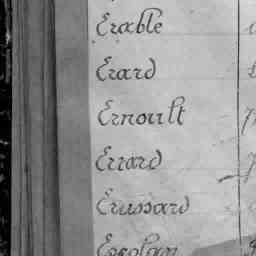 Erable
Erard
Ernoult
Errard
Erussard